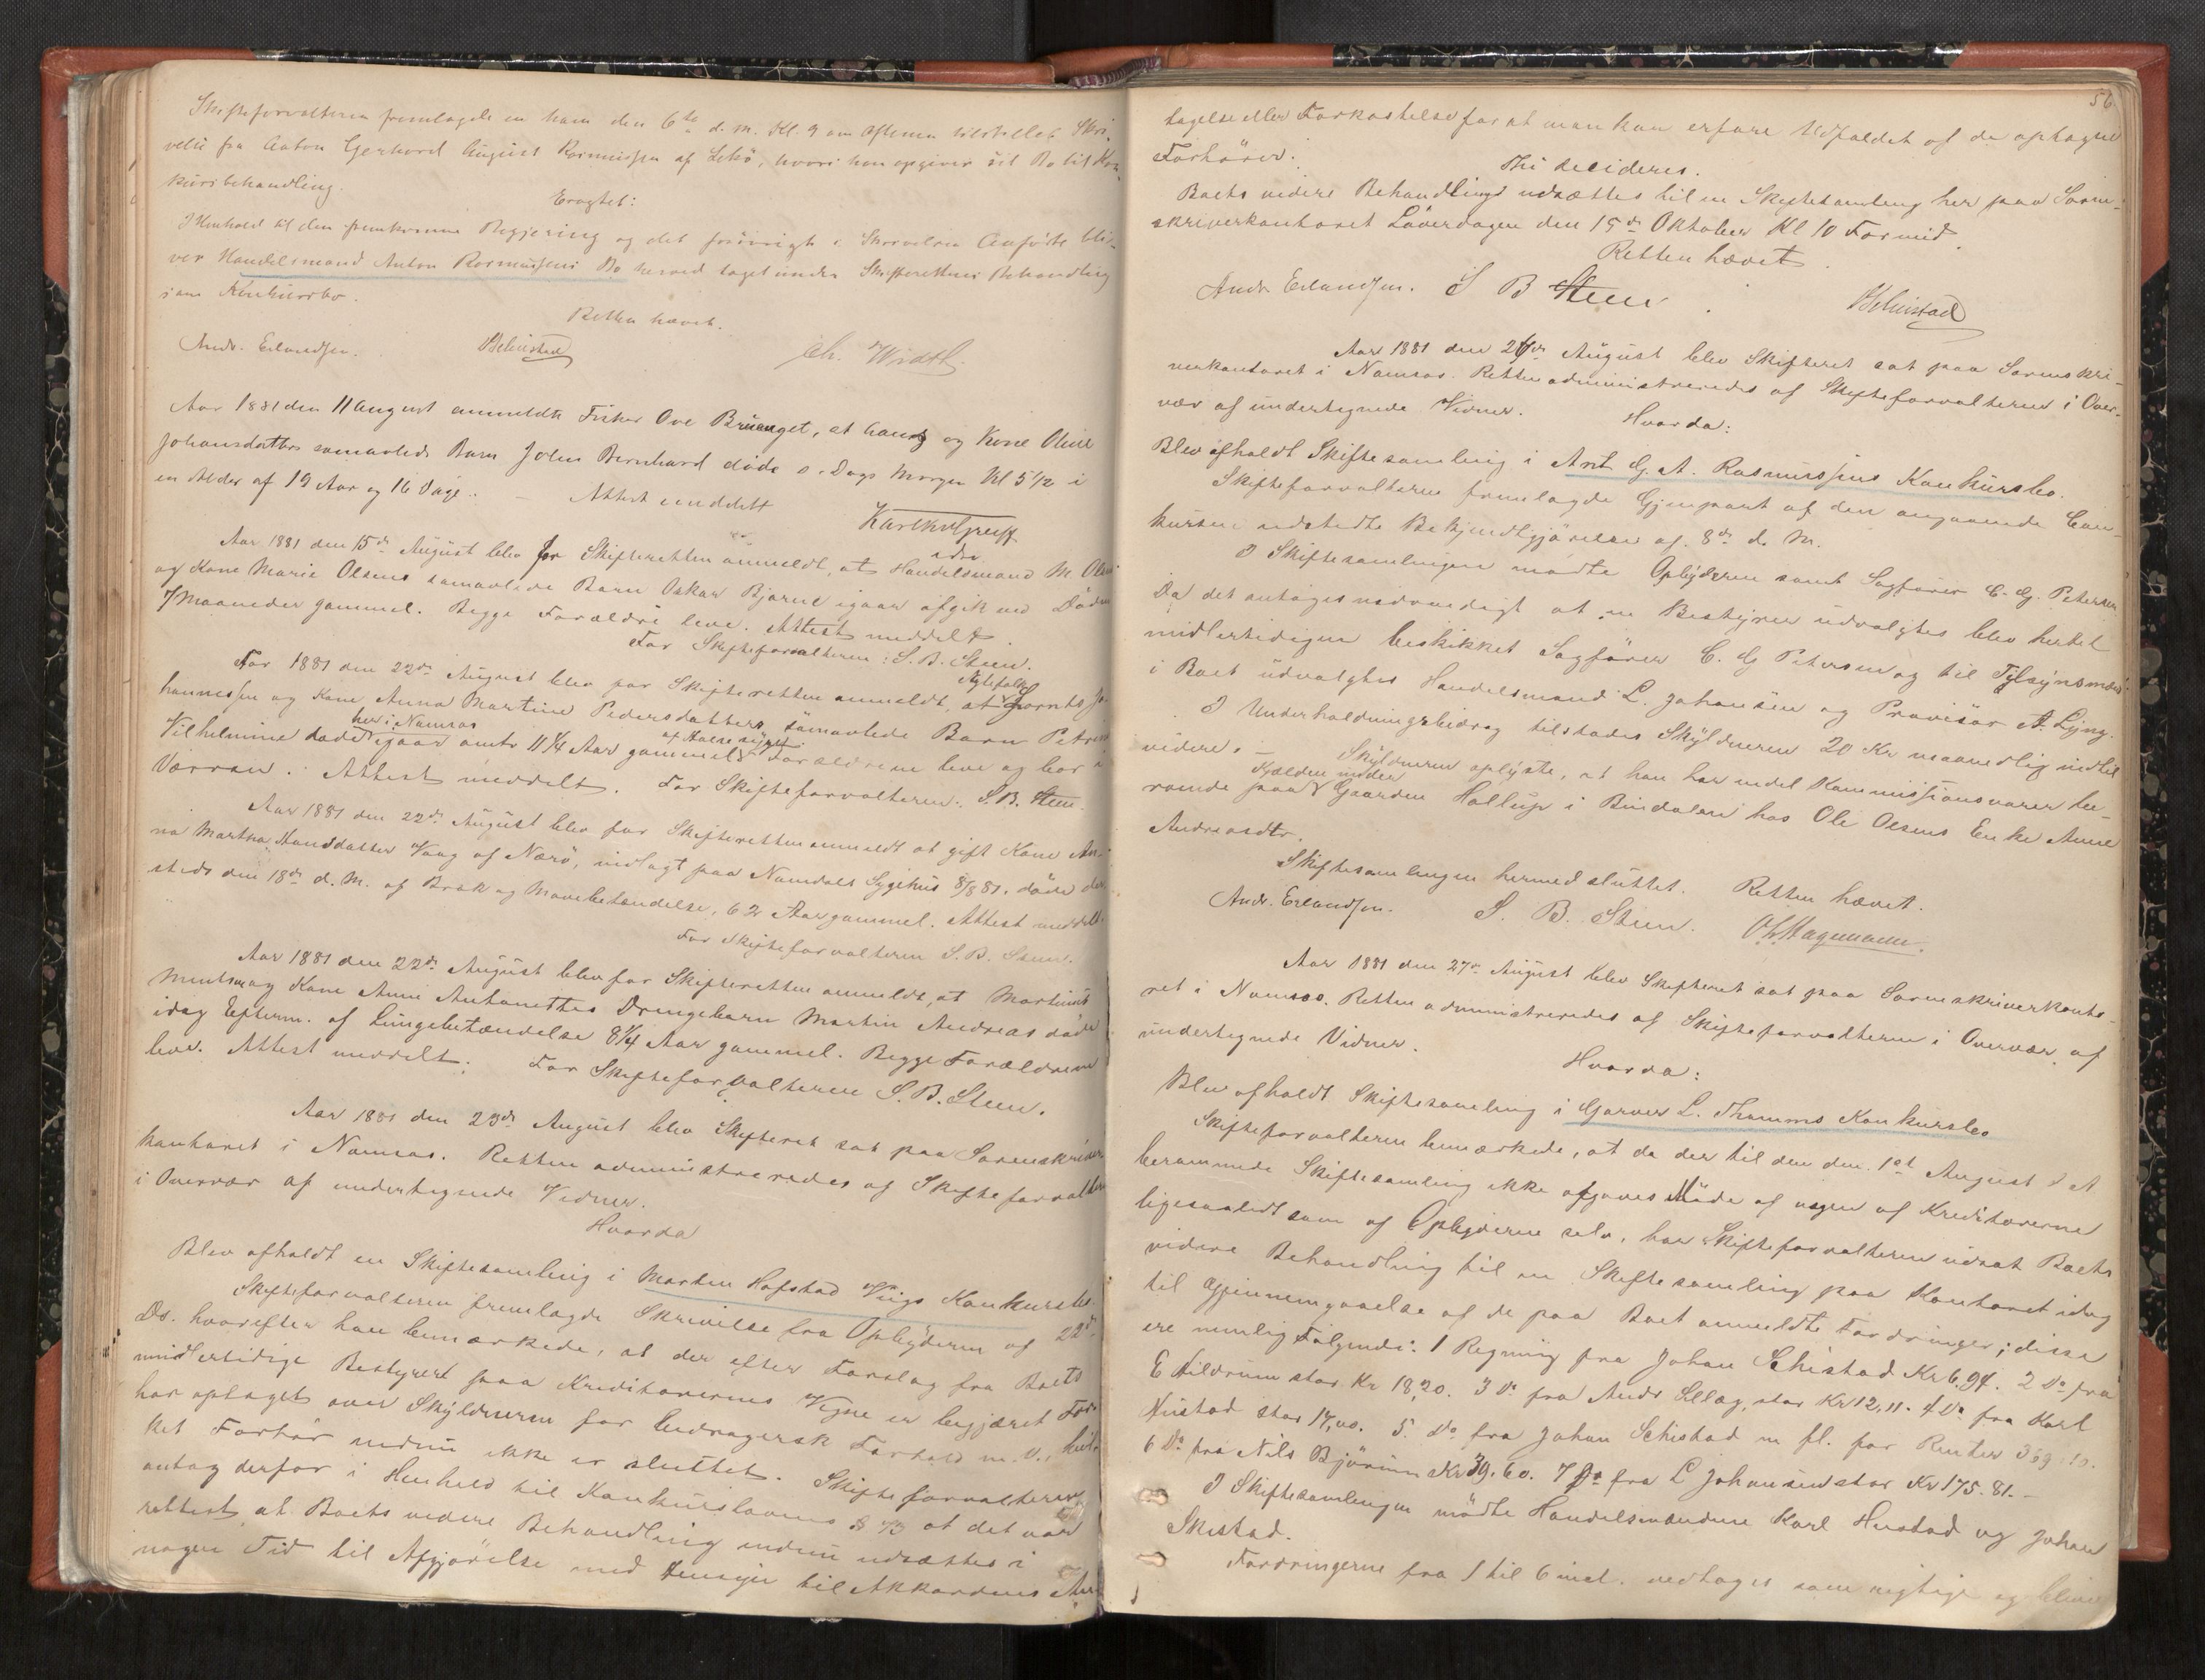 Skifteforvalteren fremlagde en ham den 6te d.m. Kl. 9 om Aftenen tilstillet Skri-
velse fra Anton Gerhard August Rasmussen af Lekö, hvori han opgiver sit Bo til Kon-
kursbehandling.
Eragtet:
I Henhold til den fremkomne Begjering og det forövrigt i Skrivelsen Anförte bli-
ver Handelsmand Anton Rasmussens Bo herved taget under Skifterettens Behandling
som Konkursbo.
Retten hævet.
Andr. Erlandsen. Behrstad Ch. Width
Aar 1881 den 11 August anmeldte Fisker Ove Bruanget, at hans og Kone Oline
Johansdatters samavlede Barn John Bernhard döde s. Dags Morgen Kl 5 1/2 i
en Alder af 19 Aar og 16 Dage. – Attest meddelt
Aar 1881 den 15de August blev for Skifteretten anmeldt, at Handelsmand M. Olsen
og Kone Marie Olsens samavlede Barn Oskar Bjarne igaar afgik ved Döden
7 Maaneder gammel. Begge Forældre leve. Attest meddelt.
For Skifteforvalteren: S. B. Steen.
Aar 1881 den 22de August blev for Skifteretten anmeldt, at Ægtefolk Jornts Jo-
hannessen og Kone Anna Martine Pedersdatters samavlede Barn Petrine
Vilhelmine döde her i Namsos igaar omtr 11 1/4 Aar gammel af Halsesyge. Forældrene leve og bor i
Værran. Attest meddelt. For Skifteforvalteren: S. B. Steen.
Aar 1881 den 22de August blev for Skifteretten anmeldt at gift Kone An-
na Martha Hansdatter Vaag af Nærö, indlagt paa Namdals Sygehus 8/8 81. döde der-
steds den 18de d. M. af Brok og Mavebetændelse, 62 Aar gammel. Attest meddelt.
For Skifteforvalteren S. B. Steen.
Aar 1881 den 22de August blev for Skifteretten anmeldt, at Martinus
og Kone Anne Antonettes Drengebarn Martin Andreas döde
idag Efterm. af Lungebetændelse 8 1/4 Aar gammel. Begge Forældrene
leve. Attest meddelt. For Skifteforvalteren S. B. Steen.
Aar 1881 den 23de August blev Skifteret sat paa Sorenskriver
kontoret i Namsos. Retten administreredes af Skifteforvalteren
i Overvær af undertegnede Vidner.
Hvorda
Blev afholdt en Skiftesamling i Morten Hofstad Viigs Konkursbo.
Skifteforvalteren fremlagde Skrivelse fra Opbyderen af 22de
Ds. hvorefter han bemærkede, at der efter Forslag fra Boets
midlertidige Bestyrer paa Kreditorernes Vegne er begjæret For-
hör optaget over Skyldneren for bedragersk Forhold m. v., hvil-
ket Forhör endnu ikke er sluttet. Skifteforvalteren
antog derfor i Henhold til Konkurslovens § 73 at det var
rettest at Boets videre Behandling endnu udsættes i
nogen Tid til Afgjörelse med Hensyn til Akkordens An-
56
tagelse eller Forkastelse for at man kan erfare Udfaldet af de optagne
Forhörer.
Thi decideres.
Boets videre Behandling udsættes til en Skiftesamling her paa Soren-
skriverkontoret Löverdagen den 15de Oktober Kl 10 Formid.
Retten hævet
Andr. Erlandsen. S B Steen. Behrstad
Aar 1881 den 26de August blev Skifteret sat paa Sorenskri-
verkontoret i Namsos. Retten administreredes af Skifteforvalteren i Over-
vær af undertegnede Vidner. Hvorda:
Blev afholdt Skiftesamling i Ant G. A. Rasmussens Konkursbo.
Skifteforvalteren fremlagde Gjenpart af den angaaende Con-
kursen udstedte Bekjendtgjörelse af 8de d. M.
I Skiftesamlingen mödte Opbyderen samt Sagförer C. G. Petersen.
Da det antages nödvendigt at en Bestyrer udvalgtes blev hertil
midlertidigen beskikket Sagförer C. G Petersen og til Tilsynsmænd
i Boet udvalgtes Handelsmand L. Johansen og Provisor A. Ljyng.
I Underholdningsbidrag tilstodes Skyldneren 20 Kr maanedlig indtil
videre. – Skyldneren oplyste, at han har endel Kommissionsvarer be-
roende paa Gaarden Hollup Kjelden under i Bindalen hos Ole Olsens Enke Anne
Andreasdtr.
Skiftesamlingen hermed sluttet. Retten hævet.
Andr. Erlandsen. S. B. Steen. O. L. Hagemann.
Aar 1881 den 27de August blev Skifteret sat paa Sorenskriverkonto-
ret i Namsos. Retten administreredes af Skifteforvalteren i Overvær af
undertegnede Vidner.
Hvorda:
Blev afholdt Skiftesamling i Garver L. Thamms Konkursbo
Skifteforvalteren bemærkede, at da der til den den 1st August d A
berammede Skiftesamling ikke afgaves Möde af nogen af Kreditorerne
ligesaalidt som af Opbyderne selv, har Skifteforvalteren udsat Boets
videre Behandling til en Skiftesamling paa Kontoret idag
til Gjennemgaaelse af de paa Boet anmeldte Fordringer; disse
ere nemlig Fölgende: 1 Regning fra Johan Schistad Kr 6.94. 2 Do fra
E Hildrum stor Kr 18,20. 3 Do fra Andr Sellæg, stor Kr 12,11. 4 Do fra Karl
Hustad stor 17,00. 5. Do fra Johan Schistad m fl. for Renter 369.10.
6 Do fra Nils Björum Kr 39.60. 7 Do fra L Johansen stor Kr 175.81.–
I Skiftesamlingen mödte Handelsmændene Karl Hustad og Johan
Skistad.
Fordringerne fra 1 til 6 incl. vedtoges som rigtige og bleve